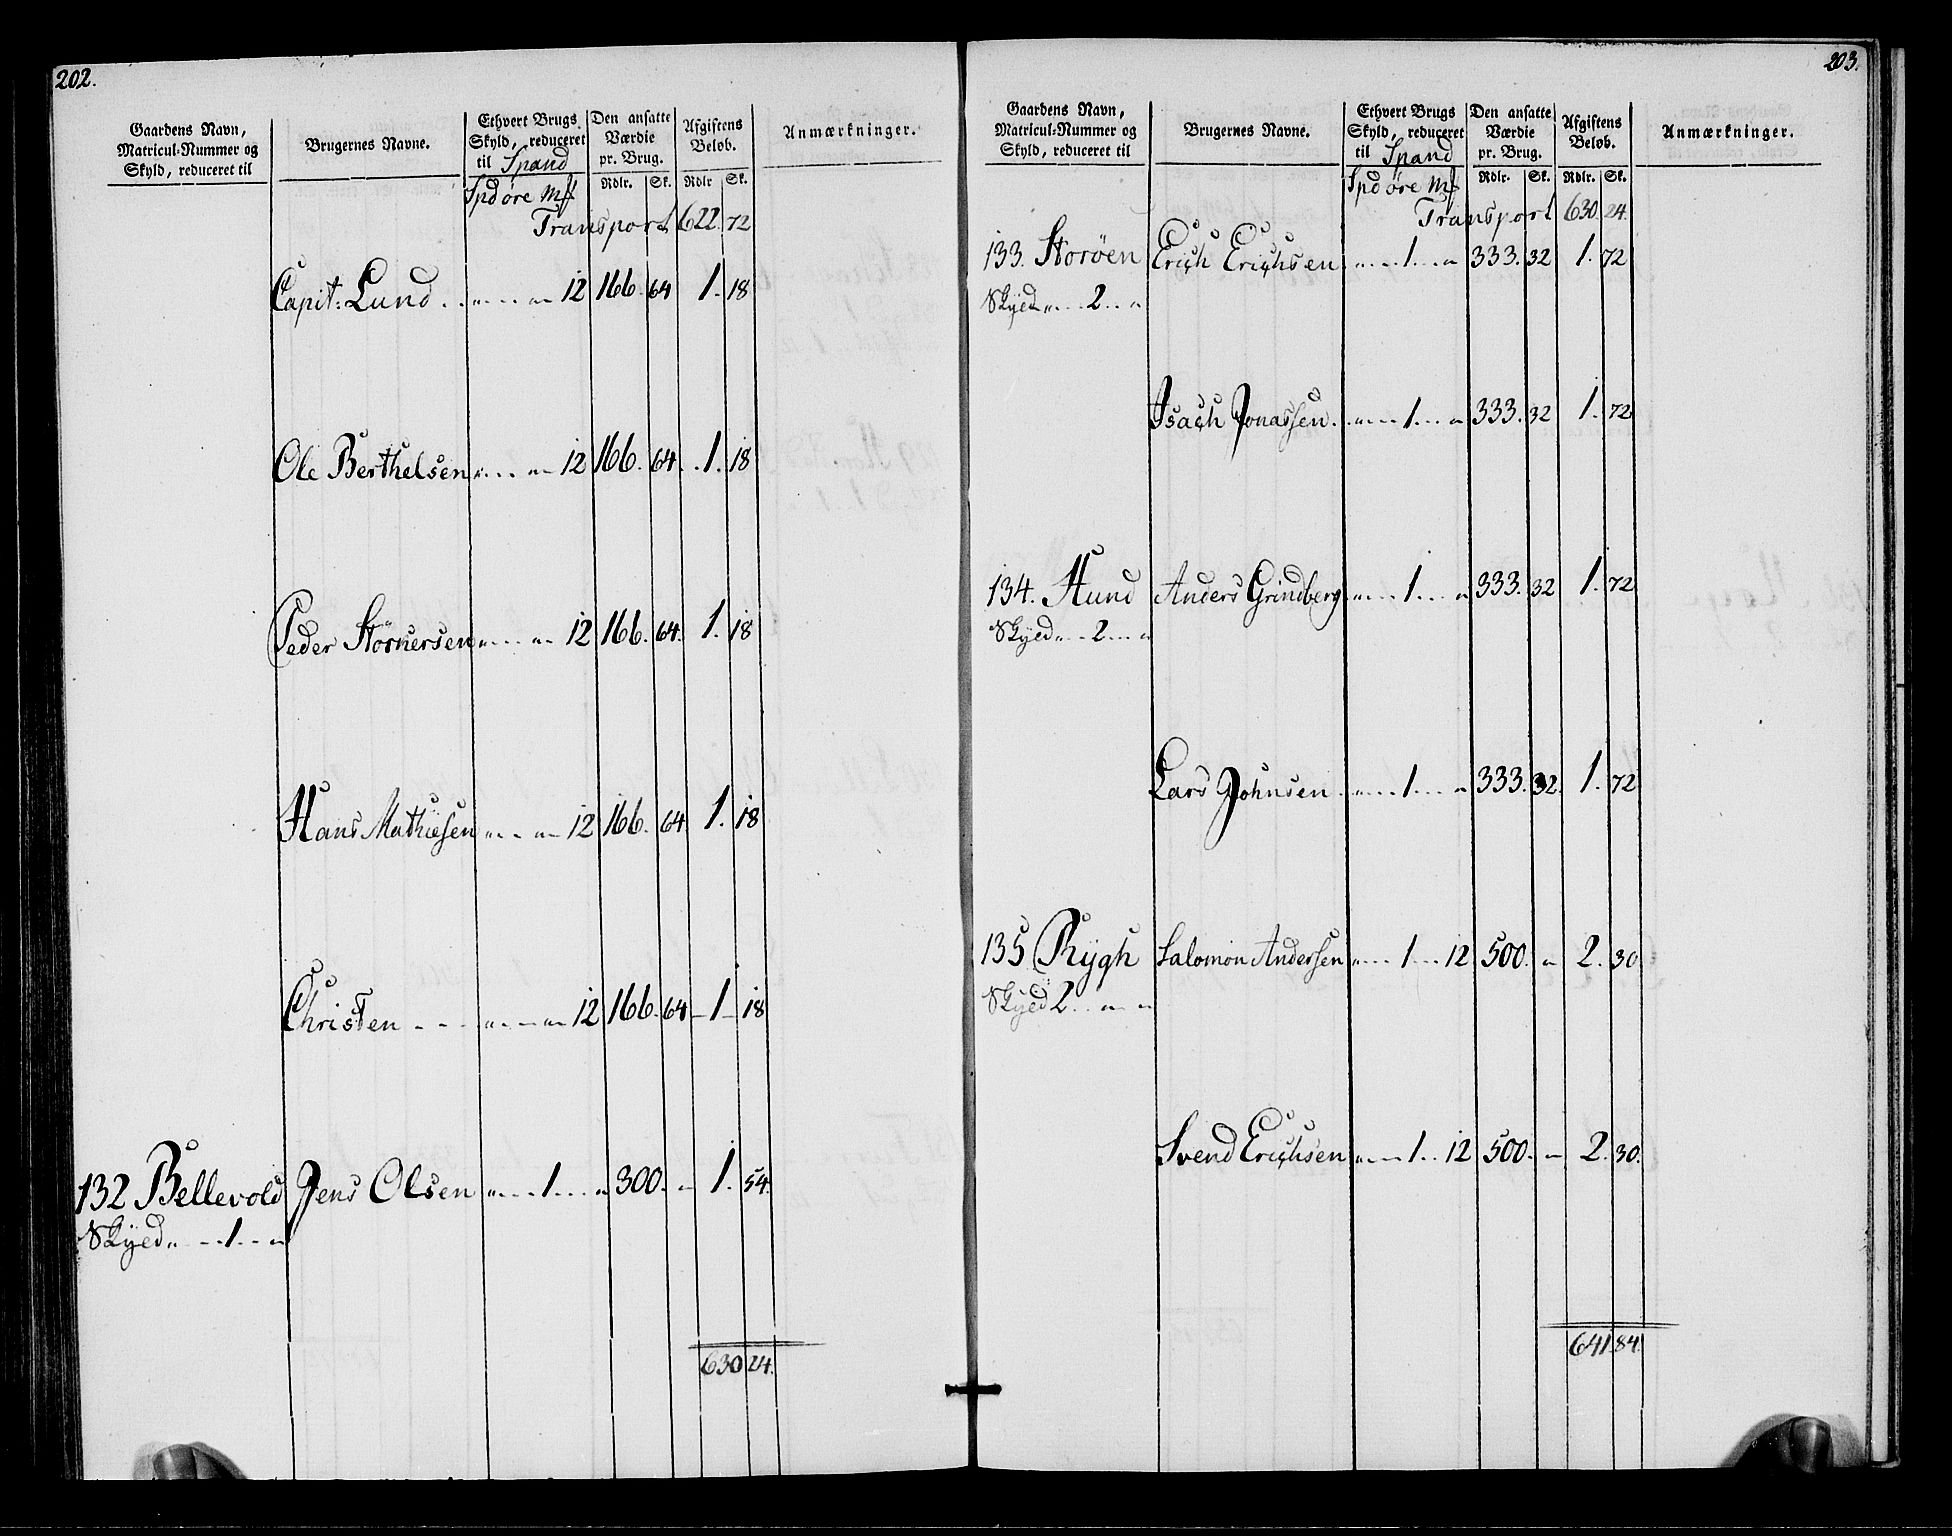 202.
Gaardens Navn, Matricul-Nummer og Skyld, reduceret til
Brugernes Navne.
Ethvert Brugs Skyld, reduceret til Spand
Den ansatte Værdie pr. Brug.
Afgiftens Beløb.
Anmærkninger.
Spd öre mſ Rdlr. Sk. Rdlr Sk.
Transport 622. 72
Capit: Lund . . „ . . . „ 12 166. 64 1. 18
Ole Berthelsen „ . . . „ 12 166. 64. 1. 18
Peder Störnersen „ . . . „ 12 166. 64. 1. 18
Hans Mathiesen „ . . „ 12 166. 64 1. 18
Christen - - - „ . . „ 12 166. 64 - 1 - 18
132 Bellevold Jens Olsen „ . . . 1 . . . „ 300. „ 1. 54.
Skyed „ . - . 1 . . „
630 24.
203.
Gaardens Navn, Matricul-Nummer og Skyld, reduceret til
Brugernes Navne.
Ethvert Brugs Skyld, reduceret til Spand
Den ansatte Værdie pr. Brug.
Afgiftens Beløb.
Anmærkninger.
Spd öre mſ Rdlr. Sk. Rdlr. Sk.
Transport 630. 24.
133. Storöen Erich Erichsen „ . . . 1 . . . „ 333. 32 1. 72
Skyed „ . . . 2 . . „
Isach Jonassen. . „ . . . 1 . . . „ 333. 32 1. 72
134. Hund Anders Grindberg „ . . . 1 . . . „ 333. 32 1. 72
Skyed „ . . . 2 . . . „
Lars Johnsen . „ . . . 1 . . . „ 333. 32. 1. 72
135 Rygh Salomon Andersen „ . . . 1 . . . 12 500. „ 2. 30
Skyed 2 . . „ . „
Svend Erichsen „ . . 1 . . 12 500. „ 2. 30.
641 84.